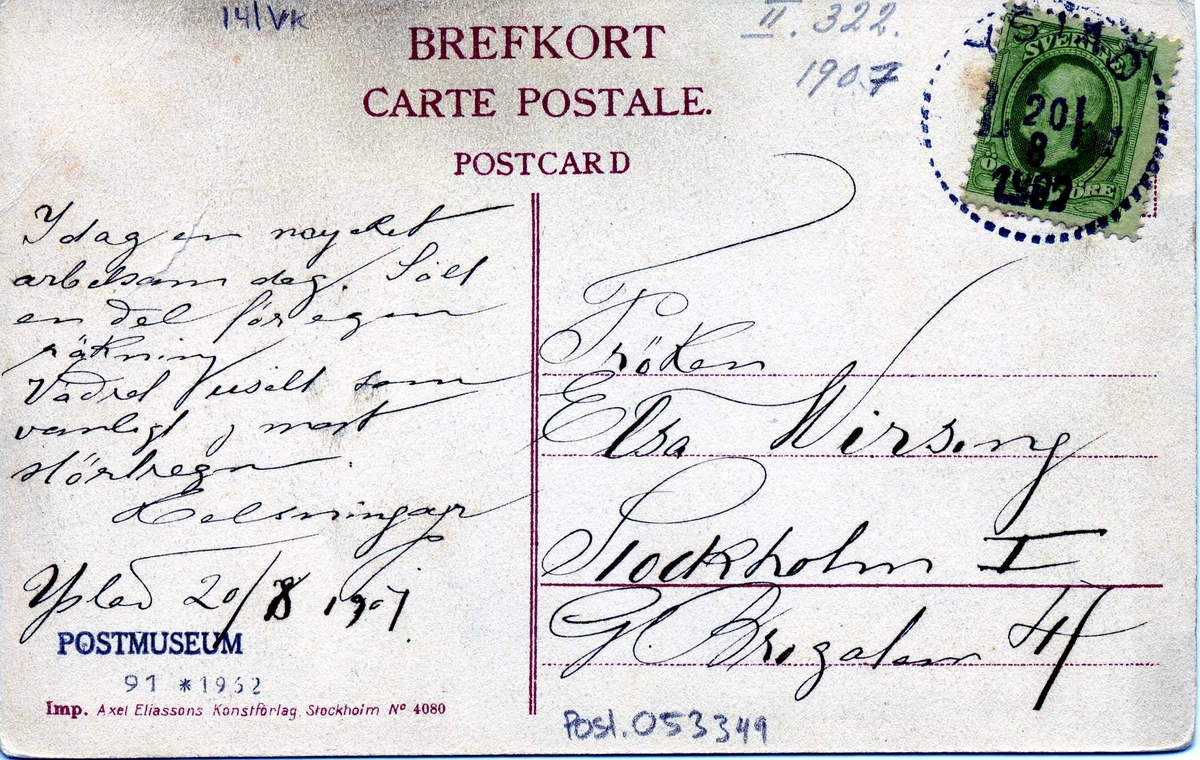 14/VK
II. 322.
1907
BREFKORT
CARTE POSTALE.
POSTCARD
SVERIGE
ÖRE
20/
8
1907
I dag en mycket
arbetsam dag. Sölt
en del för egen
räkning
Vädret Uselt som
vanligt, mest
störtregn
Helsningar
Ystad 20/8 1907
Fröken
Elsa Wirsing
Stockholm I
Gl. Brogatan 41
POSTMUSEUM
91 *1952
Imp. Axel Eliassons Konstförlag. Stockholm Nº 4080
Post.053349